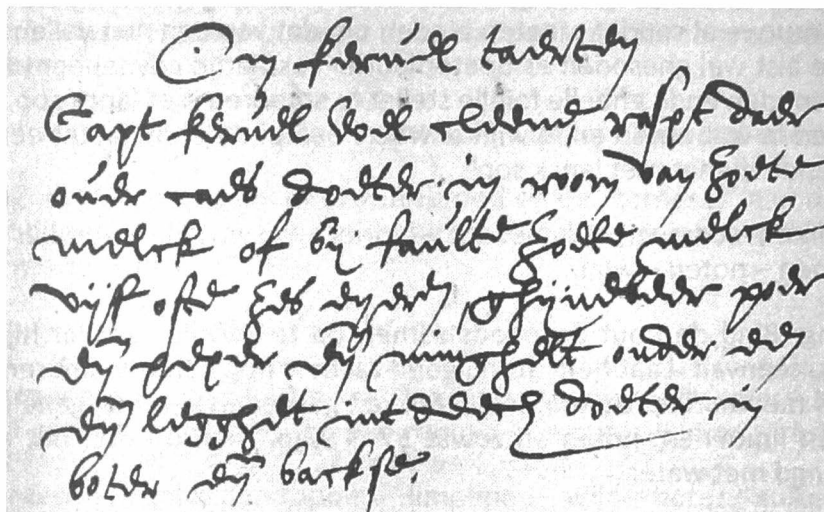 Om keruel taerten
Capt keruel wel cleene raspt daer
ouer caes doeter in room van zoete
melck of by faulte zoete melck
vijff ofte zes eyeren ghijnebeer poer
en peper en minghelt onder een
en legghet int deech doeter in
boter en backse.